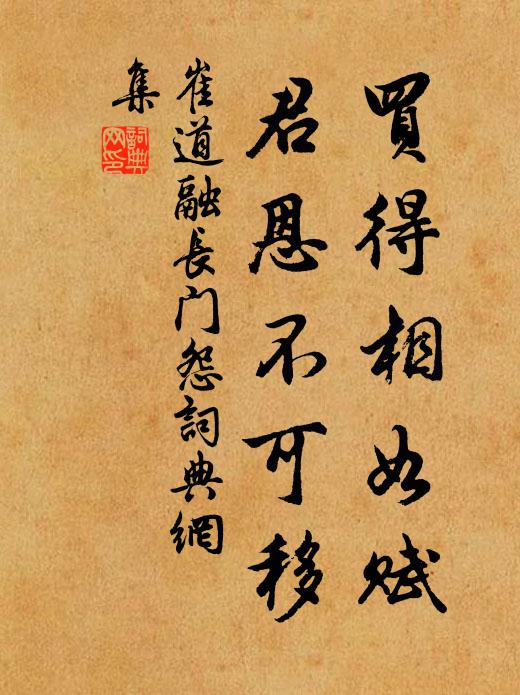 買得相如賦
君恩不可移
崔道融長门怨詞典網
集
詞典
网印